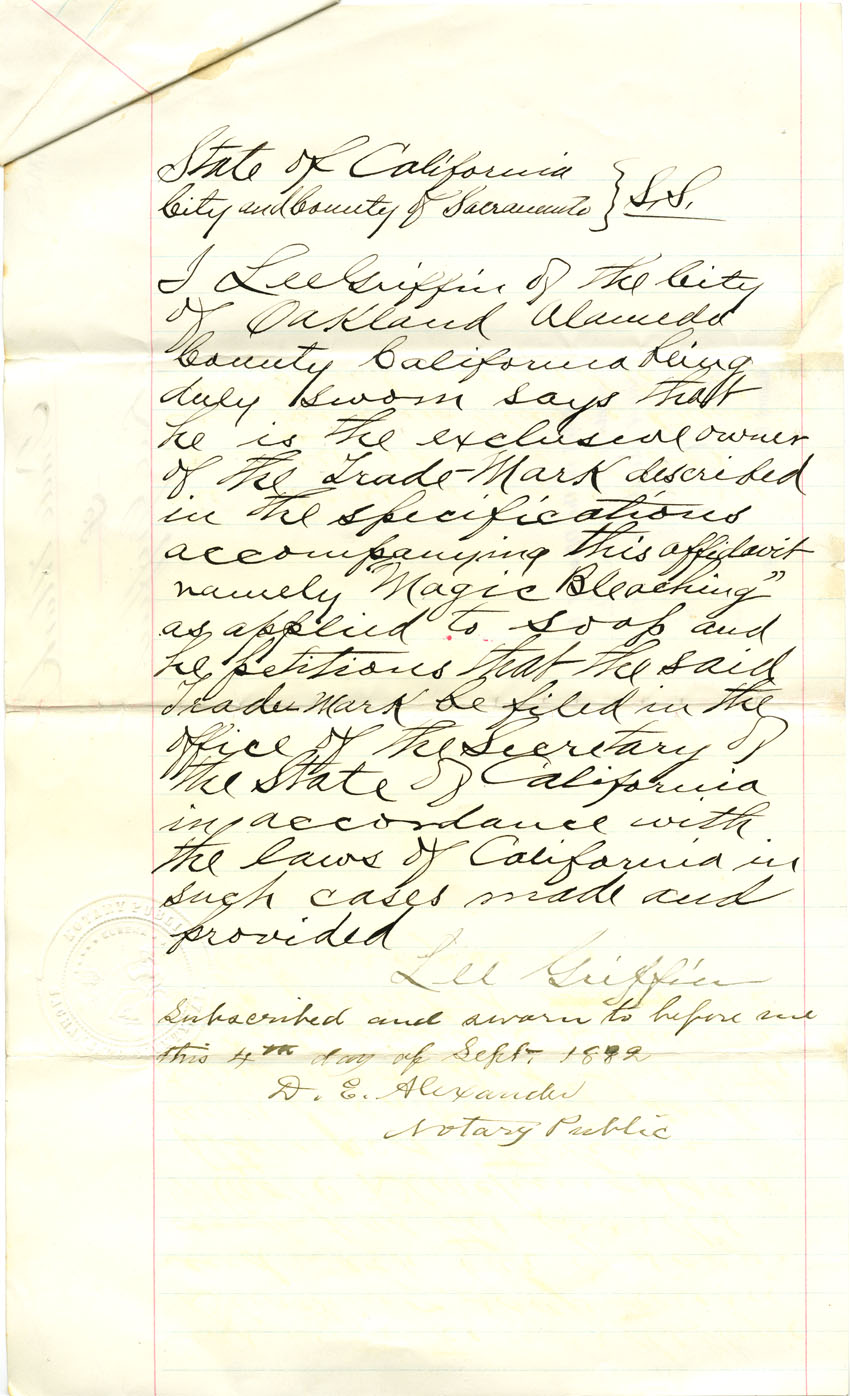 State of California
City and County of Sacramento } S.S.
I Lee Griffin of the City
of Oakland Alameda
County California being
duly sworn says that
he is the exclusive owner
of the Trade-Mark described
in the specifications
accompanying this affidavit
namely "Magic Bleaching"
as applied to soap and
he petitions that the said
Trade-Mark be filed in the
office of the Secretary of
the State of California
in accordance with
the laws of California in
such cases made and
provided
Lee Griffin
Subscribed and sworn to before me
this 4th day of Sept. 1882
D. E. Alexander
Notary Public
NOTARY PUBLIC